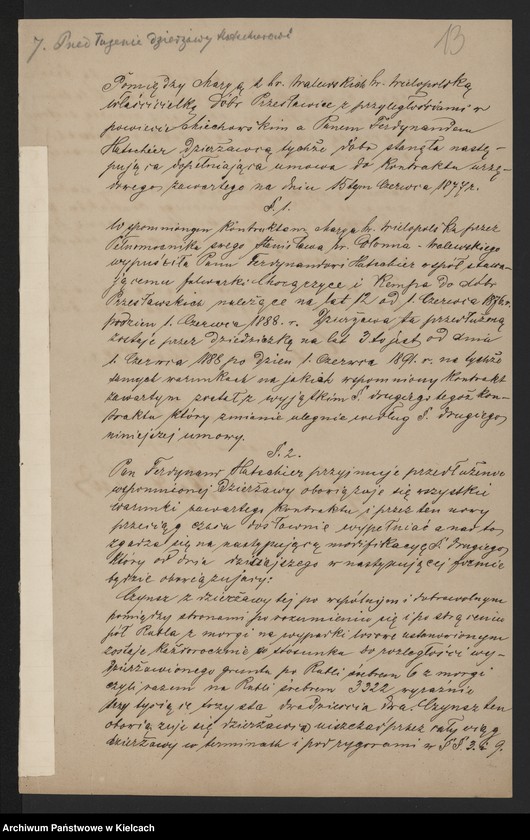 7. Przedłużenie dzierżawy
13
Pomiędzy Maryą z hr. Walewskich hr. Wielopolską
właścicielką dóbr Przesławice z przyległościami w
powiecie Miechowskim a Panem Ferdynandem
Hatschier dzierżawcą tychże dóbr stanęła nastę-
pująca dopełniająca umowa do Kontraktu urzę-
dowego zawartego na dniu 15tym Czerwca 1877 r.
§ 1.
Wspomnionym Kontraktem Marya hr. Wielopolska przez
Pełnomocnika swego Stanisława hr. Colonna-Walewskiego
wypuściła Panu Ferdynandowi Hatschier współ stawa-
jącemu folwarki i Kempa do dóbr
Przesławickich należące na lat 12 od 1. Czerwca 1876 r.
po dzień 1. Czerwca 1888. r. Dzierżawa ta przedłużoną
zostaje przez dziedziczkę na lat 3 to jest od dnia
1. Czerwca 188 po dzień 1. Czerwca 1891. r. na tychże
samych warunkach na jakich wspomniony Kontrakt
zawartym został z wyjątkiem §. drugiego tegoż Kon-
traktu który zmianie ulegnie według §. drugiego
niniejszej umowy.
§. 2.
Pan Ferdynand Hatschier przyjmuje przedłużenie
wspomnionej Dzierżawy obowiązuje się wszystkie
warunki zawartego Kontraktu i przez ten nowy
przeciąg czasu dosłownie wypełniać a nadto
zgadza się na następującą modifikacyą §. drugiego
który od dnia dzisiajszego w następującej formie
będzie obowiązujący:
Czynsz z dzierżawy tej po wspólnym i dobrowolnym
pomiędzy stronami porozumieniu się i po strąceniu
pół Rubla z morgi na wypadki losowe ustanowionym
zostaje każdorocznie w stosunku do rozległości wy-
dzierżawionego gruntu po Rubli srebrem 6 z morgi
czyli razem na Rubli srebrem 3322 wyraźnie
trzy tysiące trzysta dwadzieścia dwa. Czynsz ten
obowiązuje się dzierżawca uiszczać przez cały ciąg
dzierżawy w terminach i pod rygorami w §§ 3. i 9.
Archiwum Państwowe w Kielcach